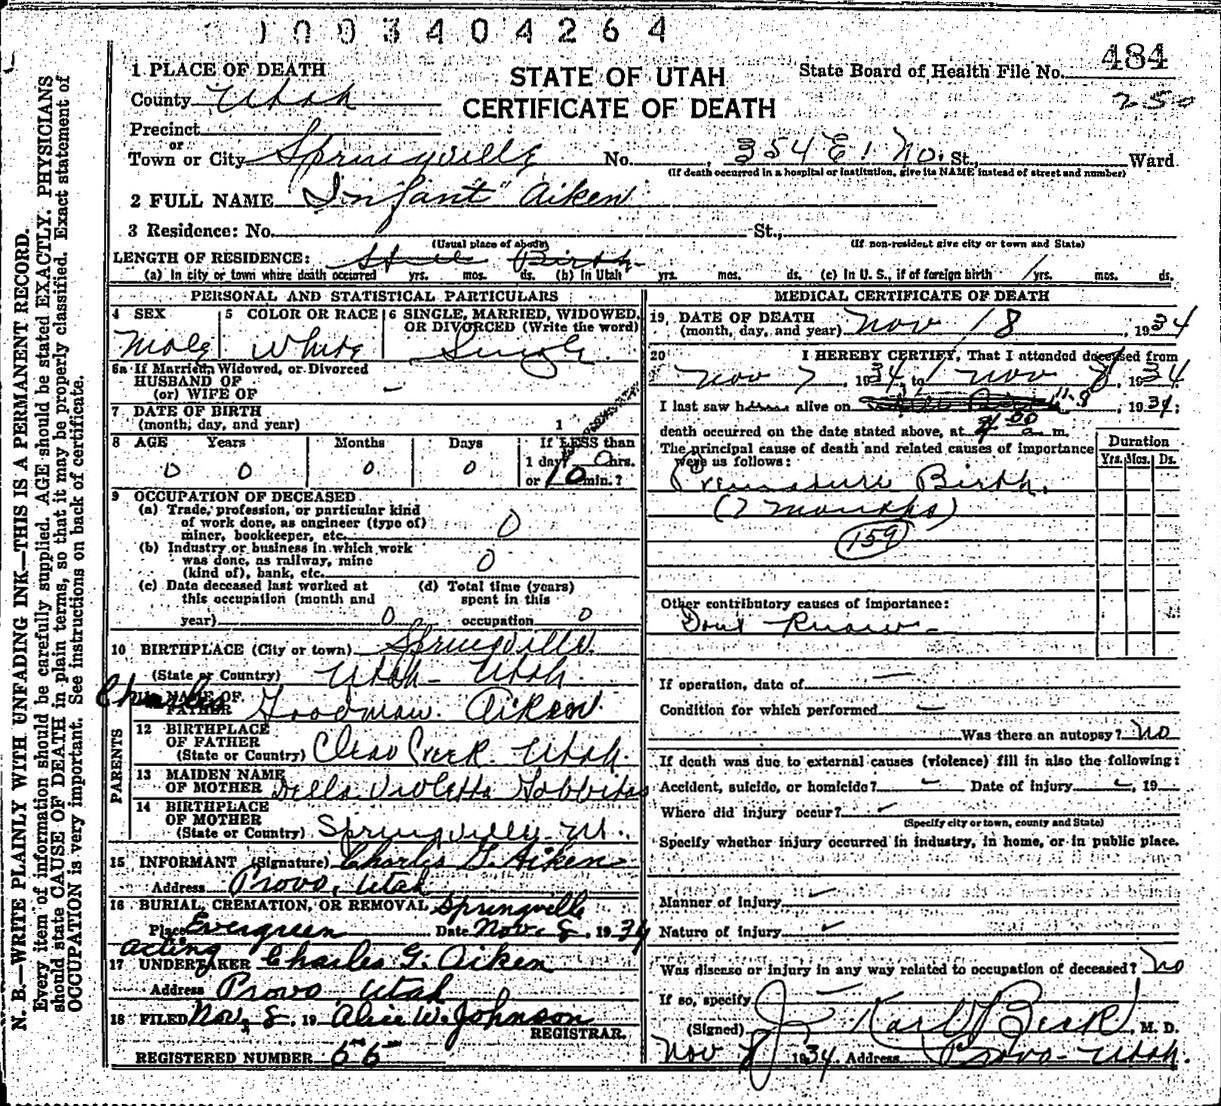 1003404264
1 PLACE OF DEATH
STATE OF UTAH
CERTIFICATE OF DEATH
State Board of Health File No. 484
250
County Utah
Precinct
or
Town or City Springville No. 354 E. 1 No. St., Ward
(If death occurred in a hospital or institution, give its NAME instead of street and number)
2 FULL NAME "Infant" Aiken
3 Residence: No. St.,
(Usual place of abode) (If non-resident give city or town and State)
LENGTH OF RESIDENCE: Still Birth
(a) In city or town where death occurred yrs. mos. ds. (b) In Utah yrs. mos. ds. (c) In U. S., if of foreign birth yrs. mos. ds.
PERSONAL AND STATISTICAL PARTICULARS
4 SEX Male
5 COLOR OR RACE White
6 SINGLE, MARRIED, WIDOWED, OR DIVORCED (Write the word) Single
6a If Married, Widowed, or Divorced
HUSBAND OF
(or) WIFE OF -
7 DATE OF BIRTH
(month, day, and year) 1
8 AGE Years Months Days If LESS than
0 0 0 0 1 day, 0 hrs.
or 10 min.?
9 OCCUPATION OF DECEASED
(a) Trade, profession, or particular kind
of work done, as engineer (type of)
miner, bookkeeper, etc. 0
(b) Industry or business in which work
was done, as railway, mine
(kind of), bank, etc. 0
(c) Date deceased last worked at
this occupation (month and
year) 0
(d) Total time (years)
spent in this
occupation 0
10 BIRTHPLACE (City or town) Springville
(State or Country) Utah - Utah.
11 NAME OF
FATHER Charles Goodman Aiken
PARENTS
12 BIRTHPLACE
OF FATHER
(State or Country) Clear Creek Utah.
13 MAIDEN NAME
OF MOTHER Della Violetta
14 BIRTHPLACE
OF MOTHER
(State or Country) Springville
15 INFORMANT (Signature) Charles G. Aiken
Address Provo, Utah
16 BURIAL, CREMATION, OR REMOVAL Springville
Place Evergreen Date Nov. 8, 1934
acting
17 UNDERTAKER Charles G. Aiken
Address Provo Utah
18 FILED Nov. 8, 19 Alice W. Johnson
REGISTRAR.
REGISTERED NUMBER 65
MEDICAL CERTIFICATE OF DEATH
19 DATE OF DEATH
(month, day, and year) Nov 8, 1934
20 I HEREBY CERTIFY, That I attended deceased from
Nov 7, 1934, to Nov 8, 1934
I last saw h alive on 11-8, 1934;
death occurred on the date stated above, at a m.
The principal cause of death and related causes of importance
were as follows:
Duration
Yrs. Mos. Ds.
Premature Birth.
(7 months)
159
Other contributory causes of importance:
Dont Know -
If operation, date of -
Condition for which performed -
Was there an autopsy? No
If death was due to external causes (violence) fill in also the following:
Accident, suicide, or homicide? - Date of injury -, 19
Where did injury occur? -
(Specify city or town, county and State)
Specify whether injury occurred in industry, in home, or in public place.
Manner of injury
Nature of injury
Was disease or injury in any way related to occupation of deceased? No
If so, specify
(Signed) J Karl Beck, M. D.
Nov 8 1934 Address Provo - Utah.
N. B.—WRITE PLAINLY WITH UNFADING INK—THIS IS A PERMANENT RECORD.
Every item of information should be carefully supplied. AGE should be stated EXACTLY. PHYSICIANS
should state CAUSE OF DEATH in plain terms, so that it may be properly classified. Exact statement of
OCCUPATION is very important. See instructions on back of certificate.